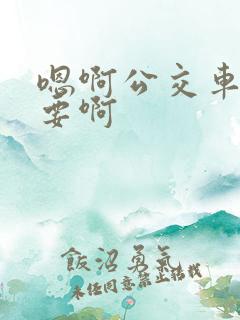 嗯啊公交车
要啊
飯沼勇氣
未经同意禁止转载